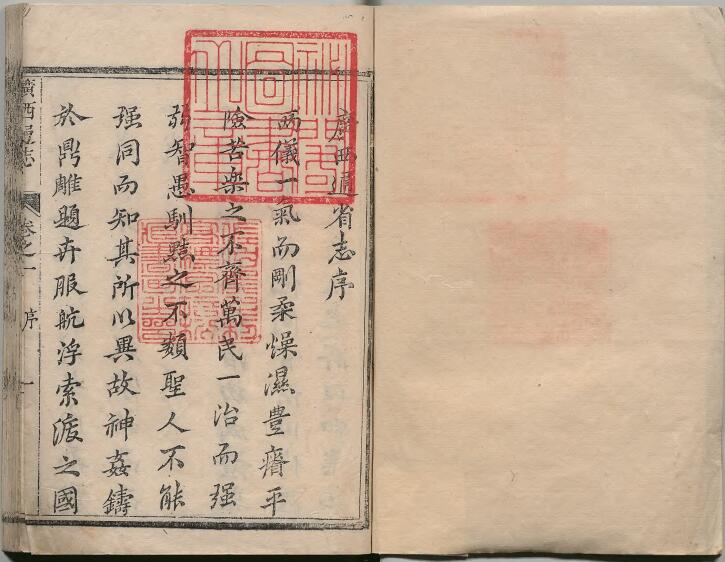 廣西通省志序
兩儀一氣而剛柔燥濕豊瘠平
險苦樂之不齊萬民一治而强
弱智愚馴黠之不類聖人不能
强同而知其所以異故神姦鑄
於鼎雕題卉服航浮索渡之國
廣西通志
卷之一
序
一